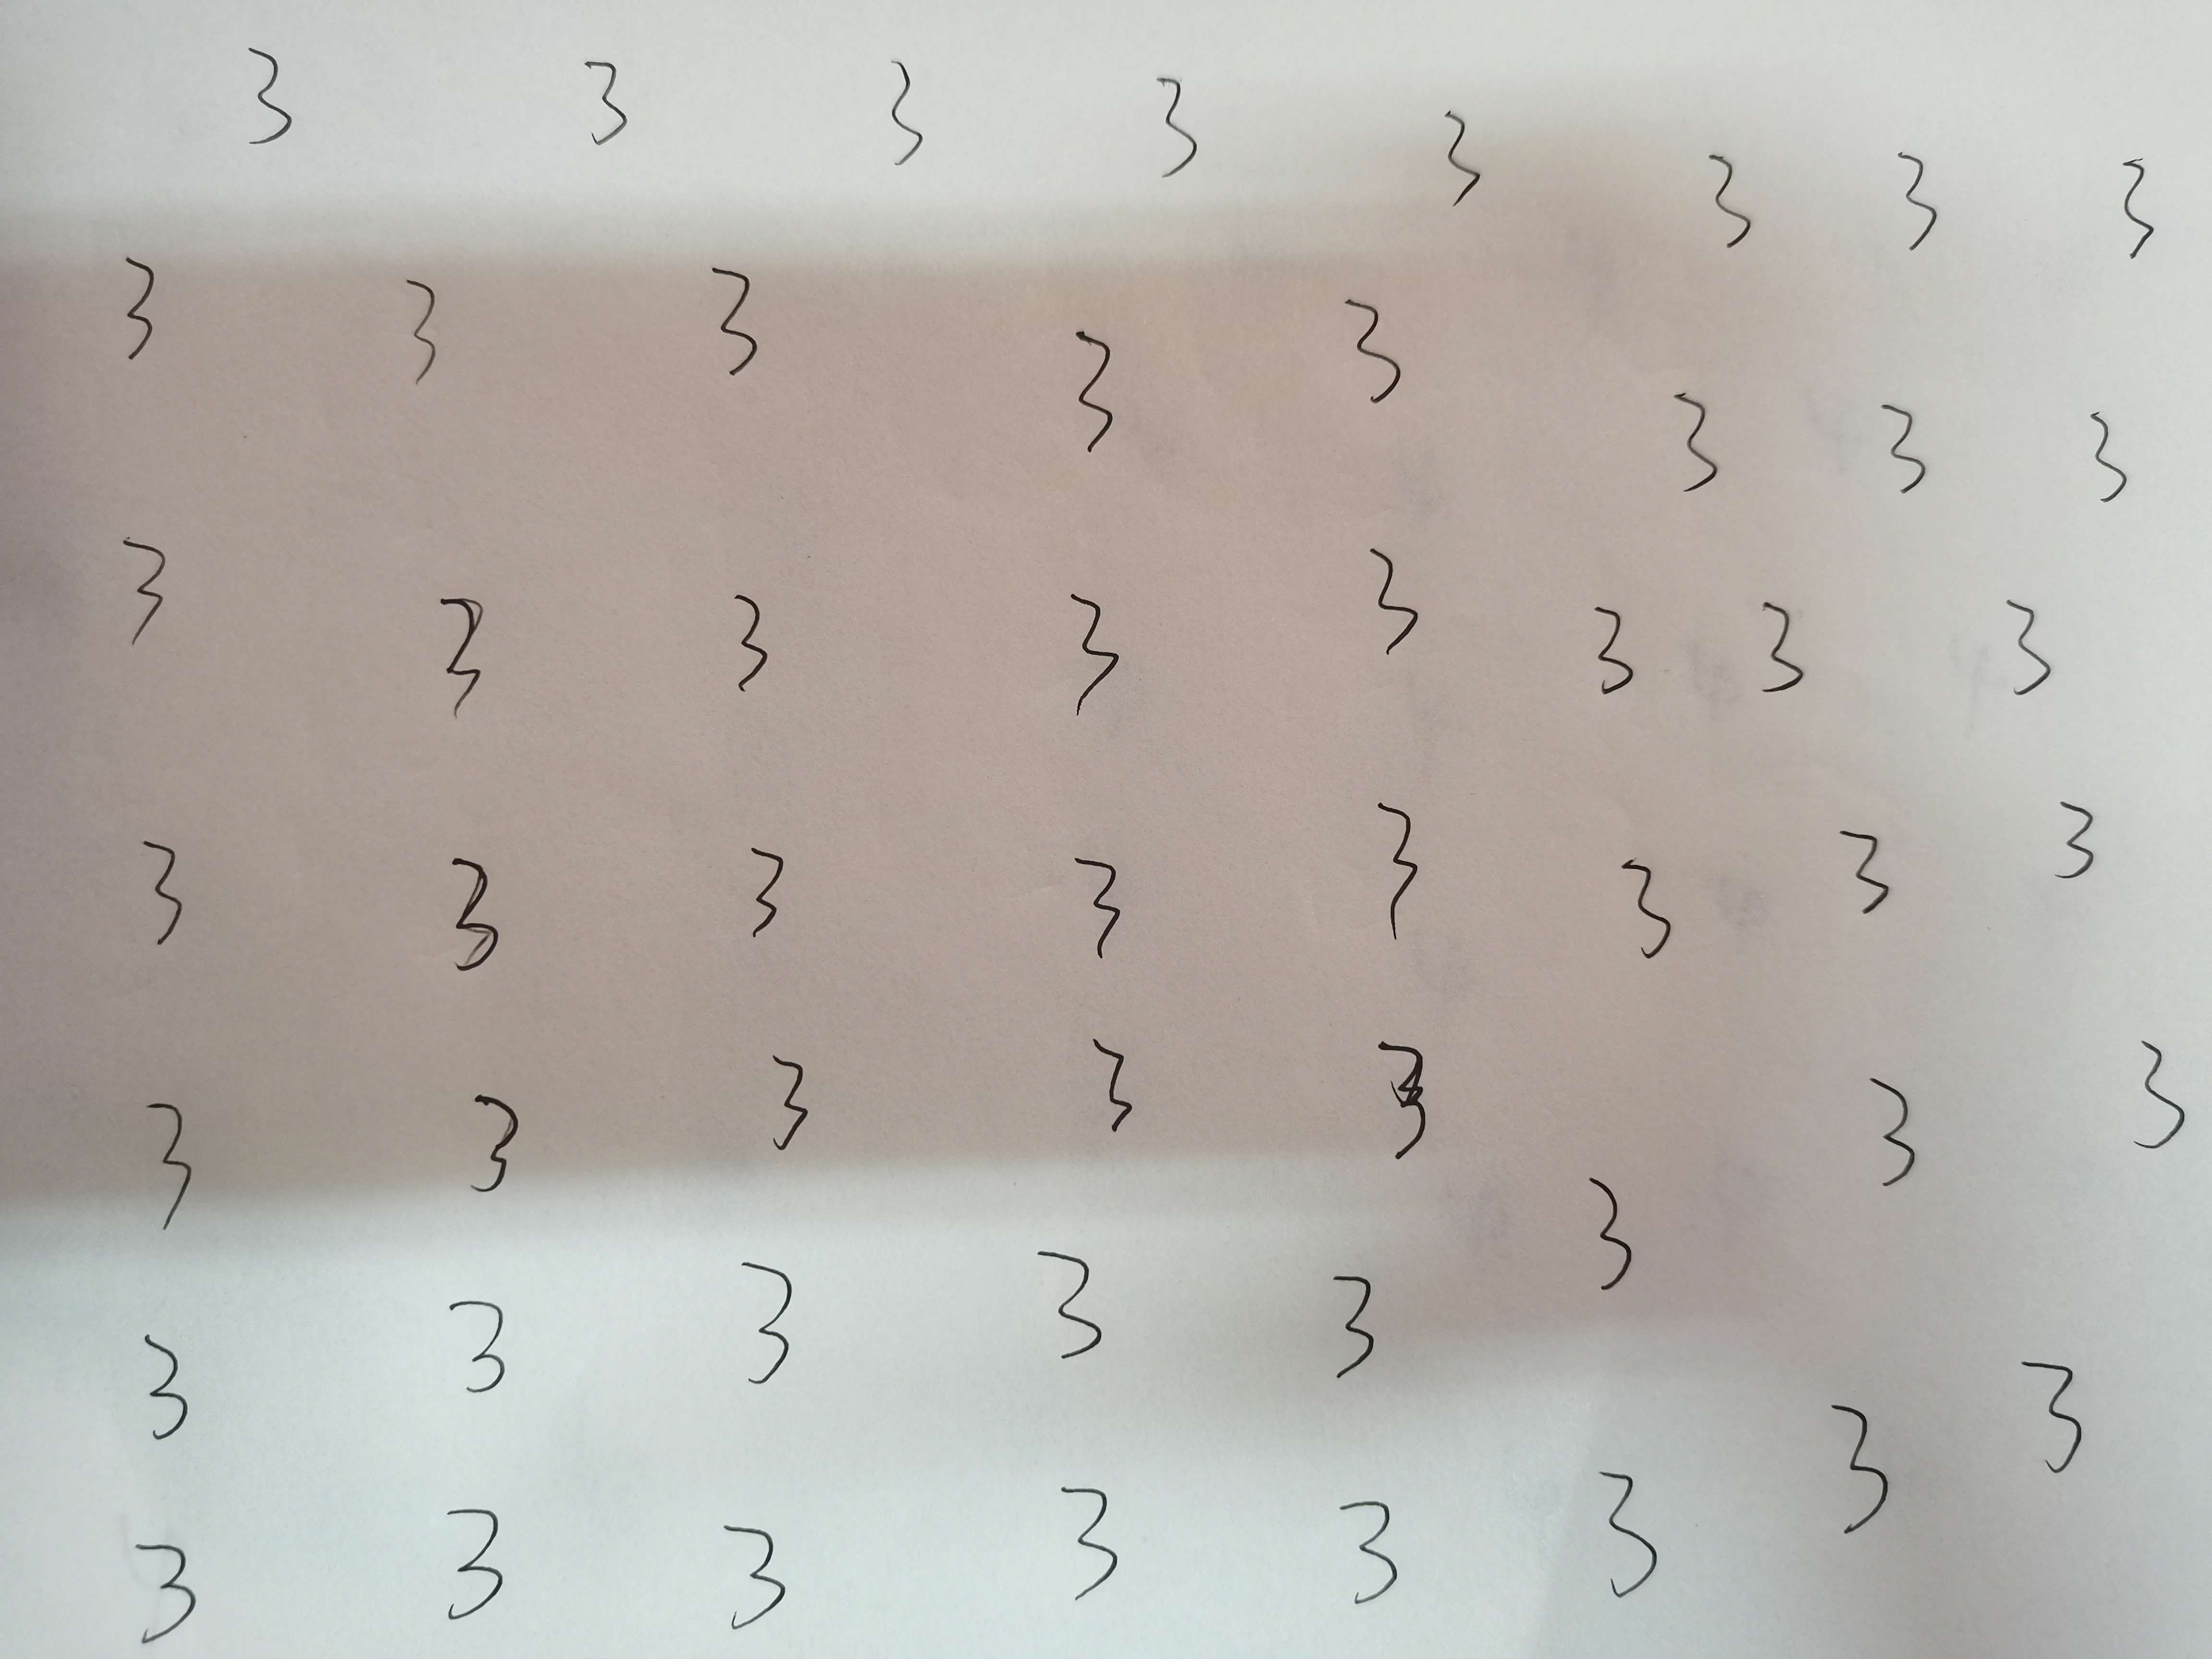 3 3 3 3 3 3 3 3
3 3 3 3 3 3 3 3
3 3 3 3 3 3 3 3
3 3 3 3 3 3 3 3
3 3 3 3 3 3 3 3
3 3 3 3 3 3 3
3 3 3 3 3 3